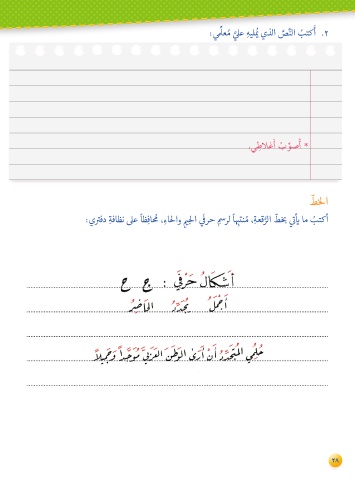 ٢. أَكتبُ النَّصَّ الذي يُمليهِ عليَّ مُعلّمي:
* أُصوِّبُ أغلاطي.
الخطّ
أكتبُ ما يأتي بخطّ الرُّقعةِ، مُنتبِهاً لرسمِ حرفَي الجيمِ والحاءِ، مُحافِظاً على نظافةِ دفتري:
أَشْكَالُ حَرْفَيْ : ج ح
أَجْمَلُ يُجَدِّدُ الحَاضِرُ
حُلُمِي المُتَجَدِّدُ أَنْ أَرَى الوَطَنَ العَرَبِيَّ مُوَحَّداً وَجَمِيلاً
٢٨